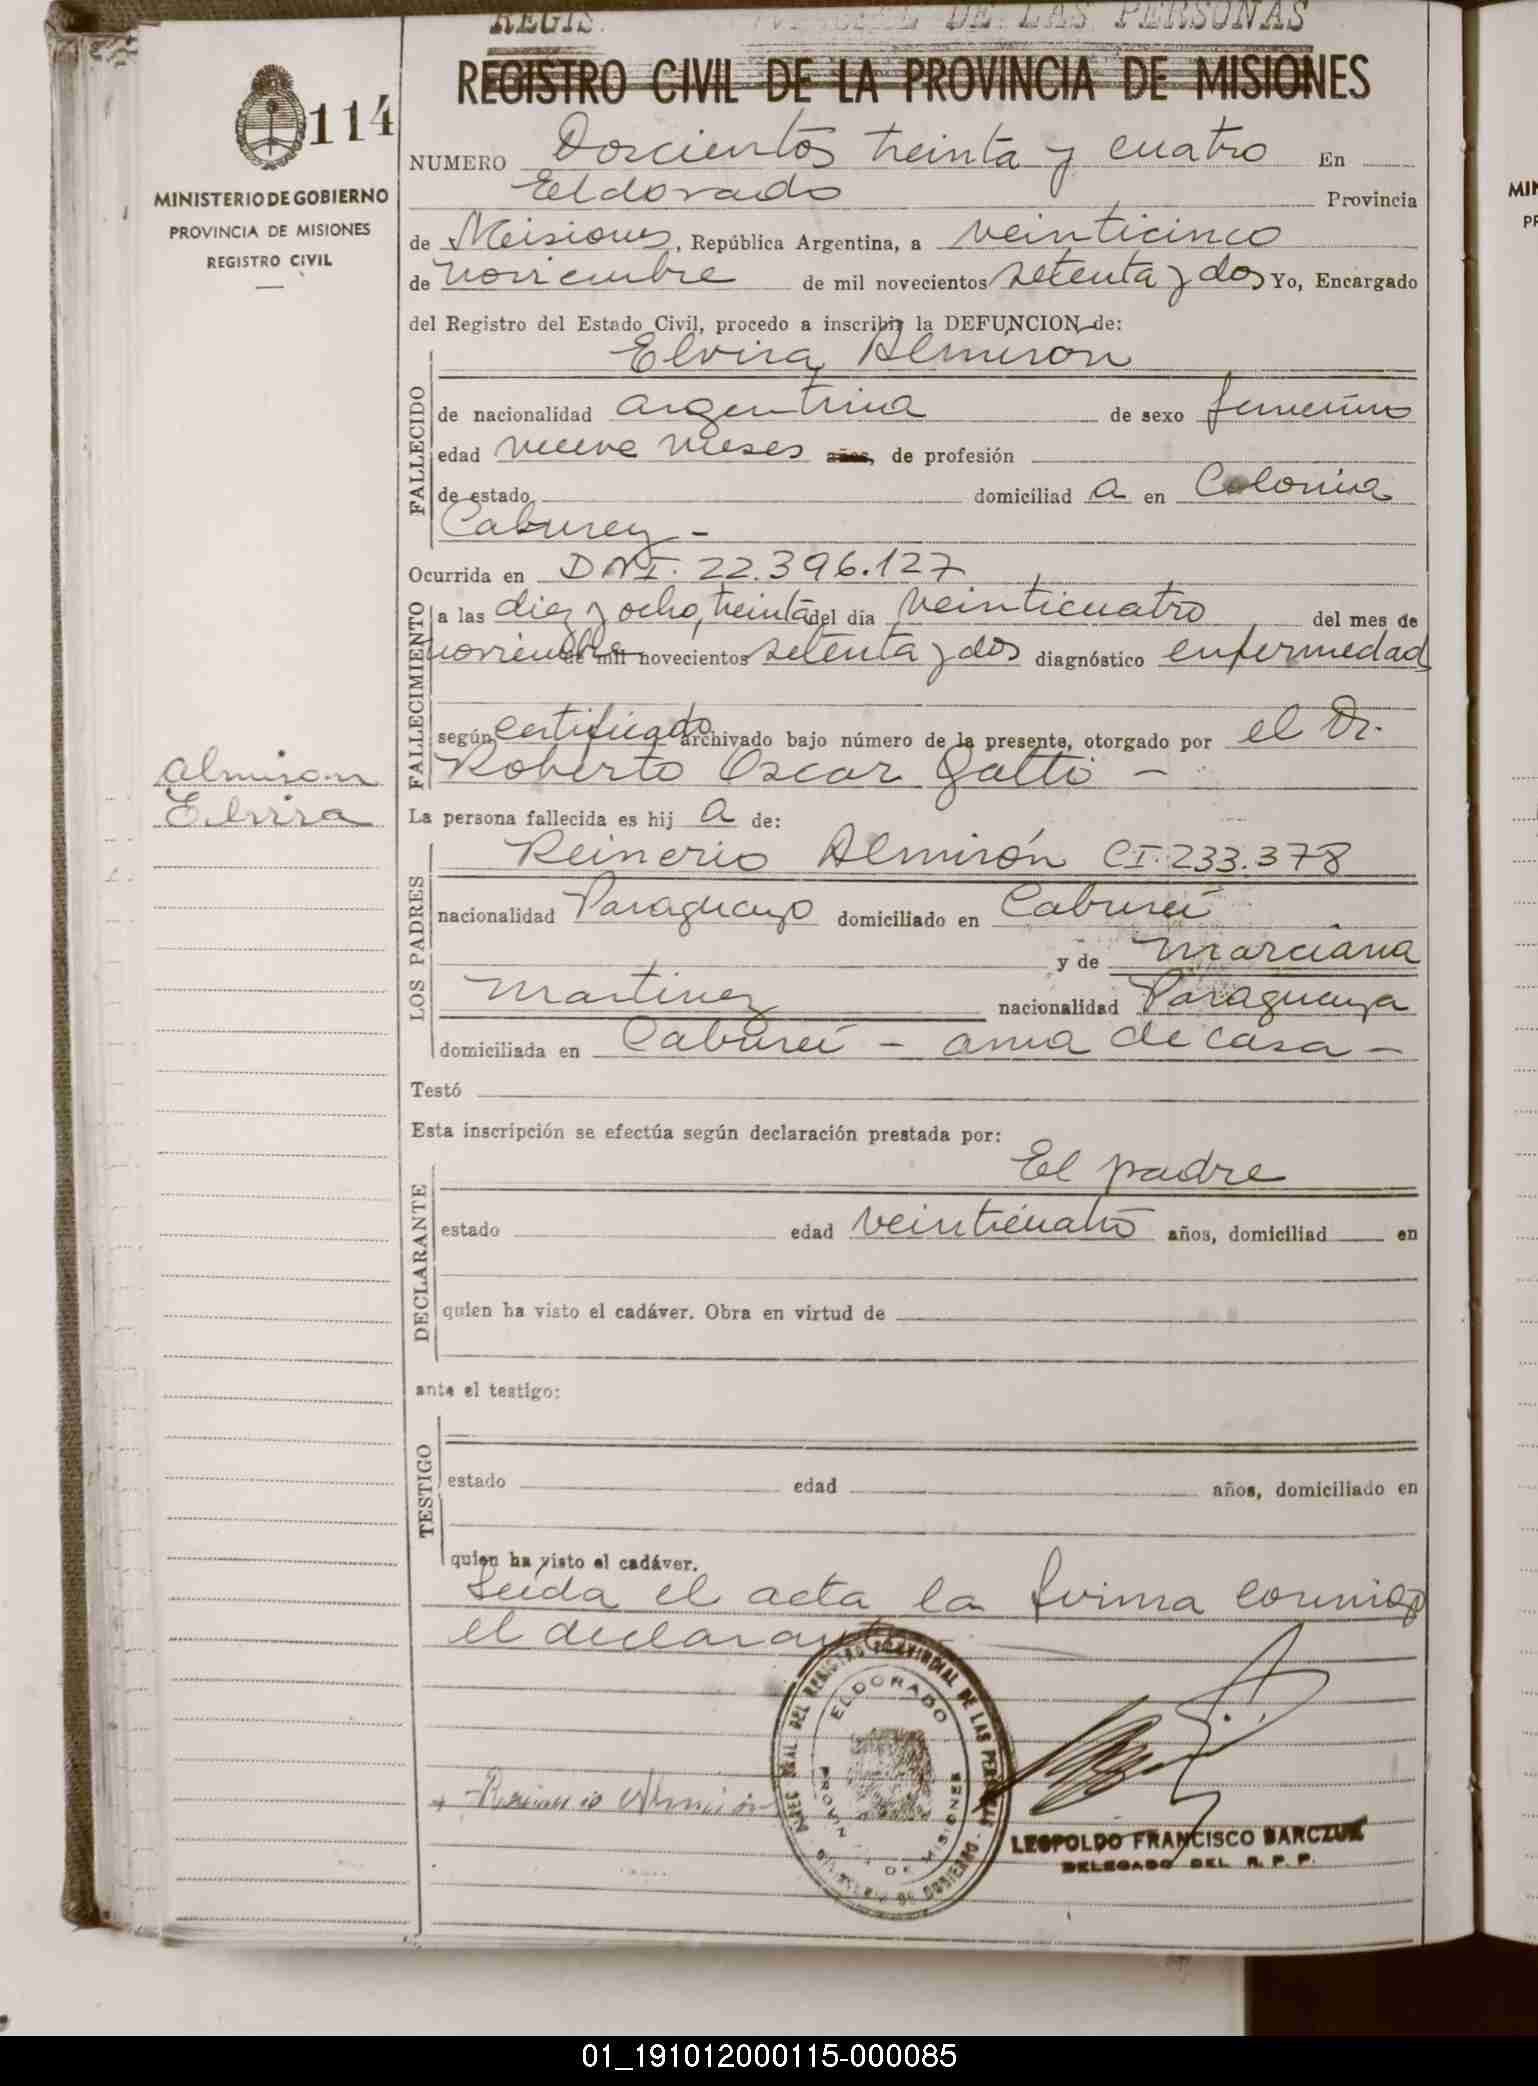 REGISTRO CIVIL DE LA PROVINCIA DE MISIONES
114
MINISTERIO DE GOBIERNO
PROVINCIA DE MISIONES
REGISTRO CIVIL
NUMERO Doscientos treinta y cuatro En
Eldorado Provincia
de Misiones, República Argentina, a veinticinco
de noviembre de mil novecientos setenta y dos Yo, Encargado
del Registro del Estado Civil, procedo a inscribir la DEFUNCION de:
Elvira Almiron
FALLECIDO
de nacionalidad argentina de sexo femenino
edad nueve meses años, de profesión
de estado domiciliad a en Colonia
Caburey -
Ocurrida en DNI. 22.396.127
FALLECIMIENTO
a las diez y ocho, treinta del dia veinticuatro del mes de
noviembre de mil novecientos setenta y dos diagnóstico enfermedad
según certificado archivado bajo número de la presente, otorgado por el Dr.
Roberto Oscar Galti -
Almiron
Elvira
La persona fallecida es hij a de:
LOS PADRES
Reinerio Almirón CI. 233.378
nacionalidad Paraguayo domiciliado en Cabureí
y de Marciana
Martinez nacionalidad Paraguaya
domiciliada en Cabureí - ama de casa -
Testó
Esta inscripción se efectúa según declaración prestada por:
El padre
DECLARANTE
estado edad veinticuatro años, domiciliad en
quien ha visto el cadáver. Obra en virtud de
ante el testigo:
TESTIGO
estado edad años, domiciliado en
quien ha visto el cadáver.
Leida el acta la firma conmigo
el declarante
ELDORADO
PROVINCIA DE MISIONES
Reinerio Almirón
LEOPOLDO FRANCISCO BARCZUK
DELEGADO DEL R. P. P.
01_191012000115-000085